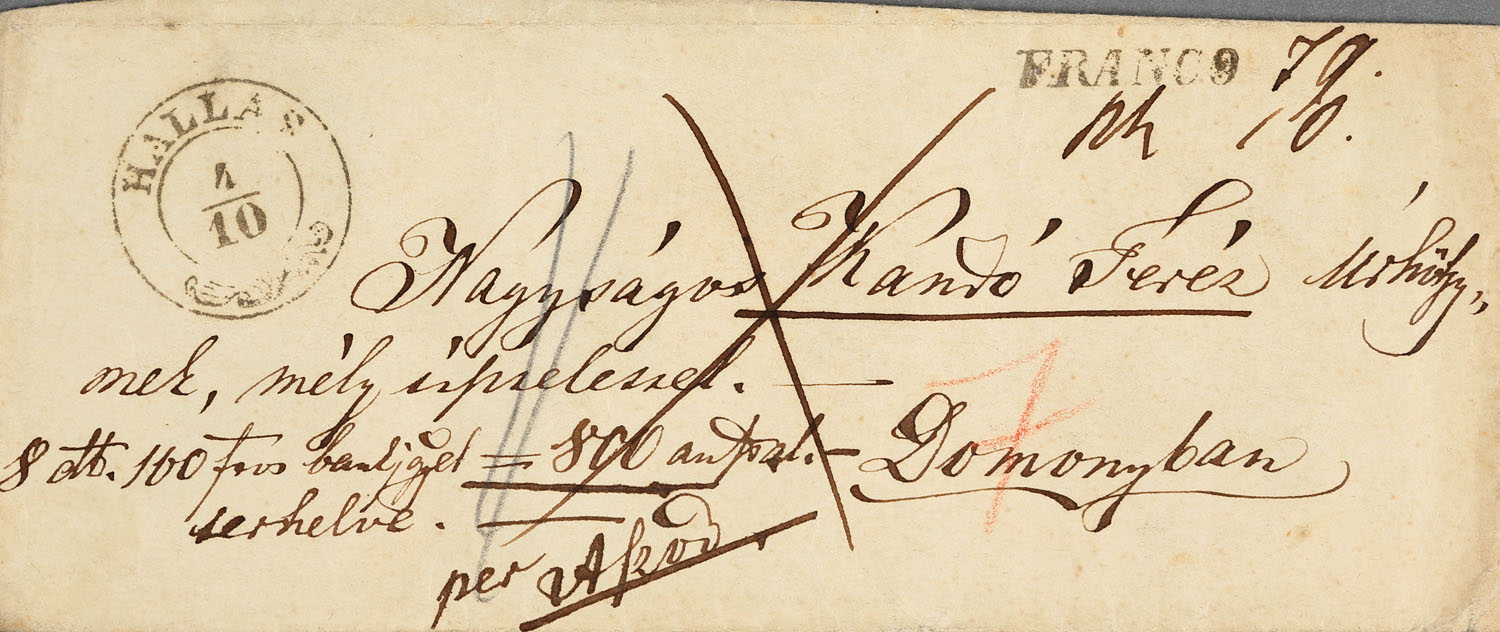 HALLAS
4/10
FRANCO 79.
10.
Nagyságos Kandó Feréz Úrhölgy„
nek, mély tisztelettel. —
8 db. 100 fros bankjegyel = 800
Domonyban
terhelve. —
per Aszód.
7